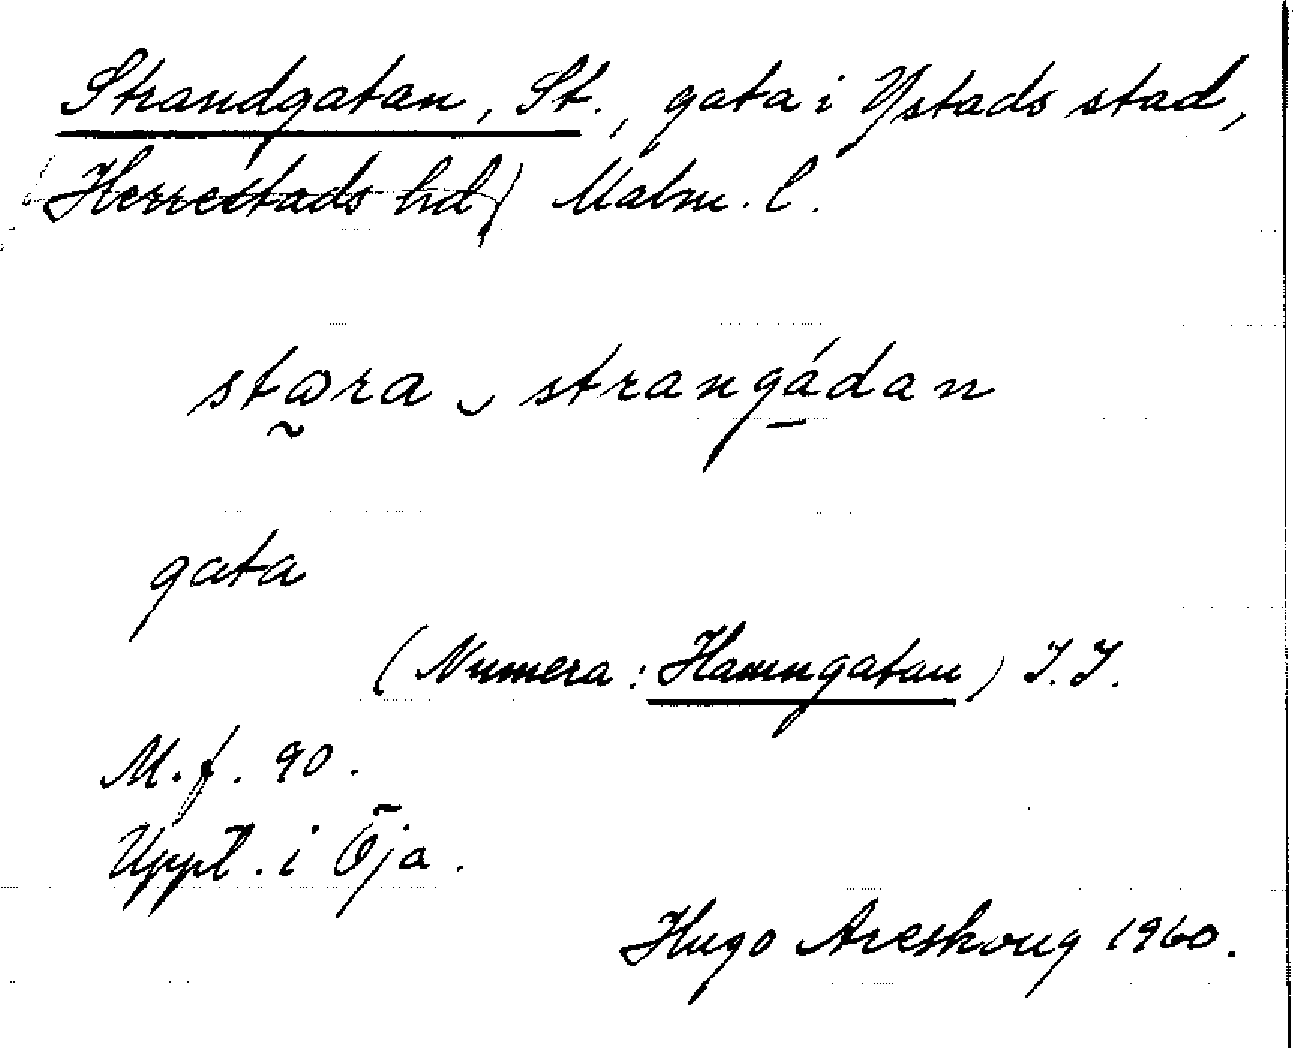 Strandgatan, St., gata i Ystads stad,
(Herrestads hd) Malm. l.
stωra ‿ strangádan
gata
(Numera: Hamngatan) I.I.
M.f. 90.
Uppt. i Öja.
Hugo Areskoug 1960.